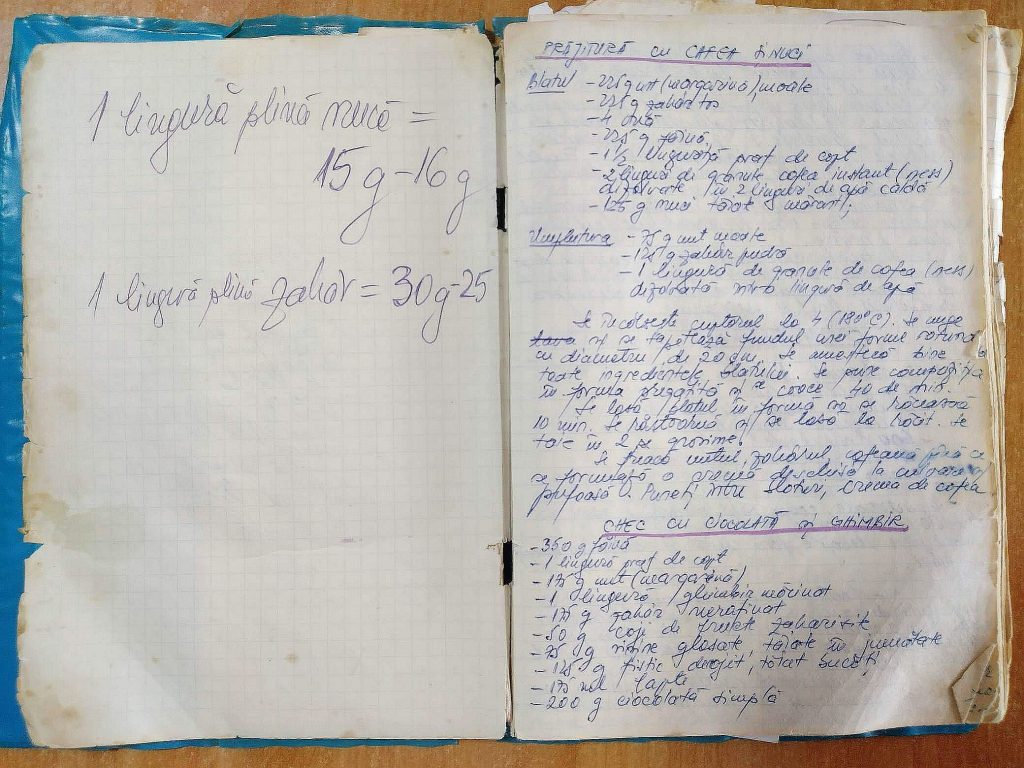 1 lingură plină nucă =
15g-16g
1 lingură plină zahăr = 30g-25
PRĂJITURĂ CU CAFEA ȘI NUCI
Blatul -225g unt (margarină) moale
-225 g zahăr tos
-4 ouă
-225 g făină
-1 1/2 linguriță praf de copt
-2 linguri de granule cafea instant (ness)
dizolvate în 2 linguri de apă caldă
-125 g nuci tăiate mărunt;
Umplutura -75 g unt moale
-125 g zahăr pudră
-1 lingură de granule de cafea (ness)
dizolvată într-o lingură de apă
Se încălzește cuptorul la 4 (180°C). Se unge
tava și se tapetează fundul unei forme rotunde
cu diametru de 20 cm. Se amestecă bine
toate ingredientele blatului. Se pune compoziția
în forma pregătită și se coace 40 de min.
Se lasă blatul în formă să se răcească
10 min. Se răstoarnă și se lasă la răcit. Se
taie în 2 pe grosime.
Se freacă untul, zahărul, cafeaua până ce
se formează o cremă deschisă la culoare și
pufoasă. Puneți între blaturi, crema de cafea
CHEC CU CIOCOLATĂ ȘI GHIMBIR
-350 g făină
-1 lingură praf de copt
-175 g unt (margarină)
-1 lingură ghimbir măcinat
-175 g zahăr nerafinat
-50 g coji de fructe zaharisite
-25 g vișine glasate, tăiate în jumătate
-125 g fistic decojit, tăiat bucăți
-175 ml lapte
-200 g ciocolată simplă